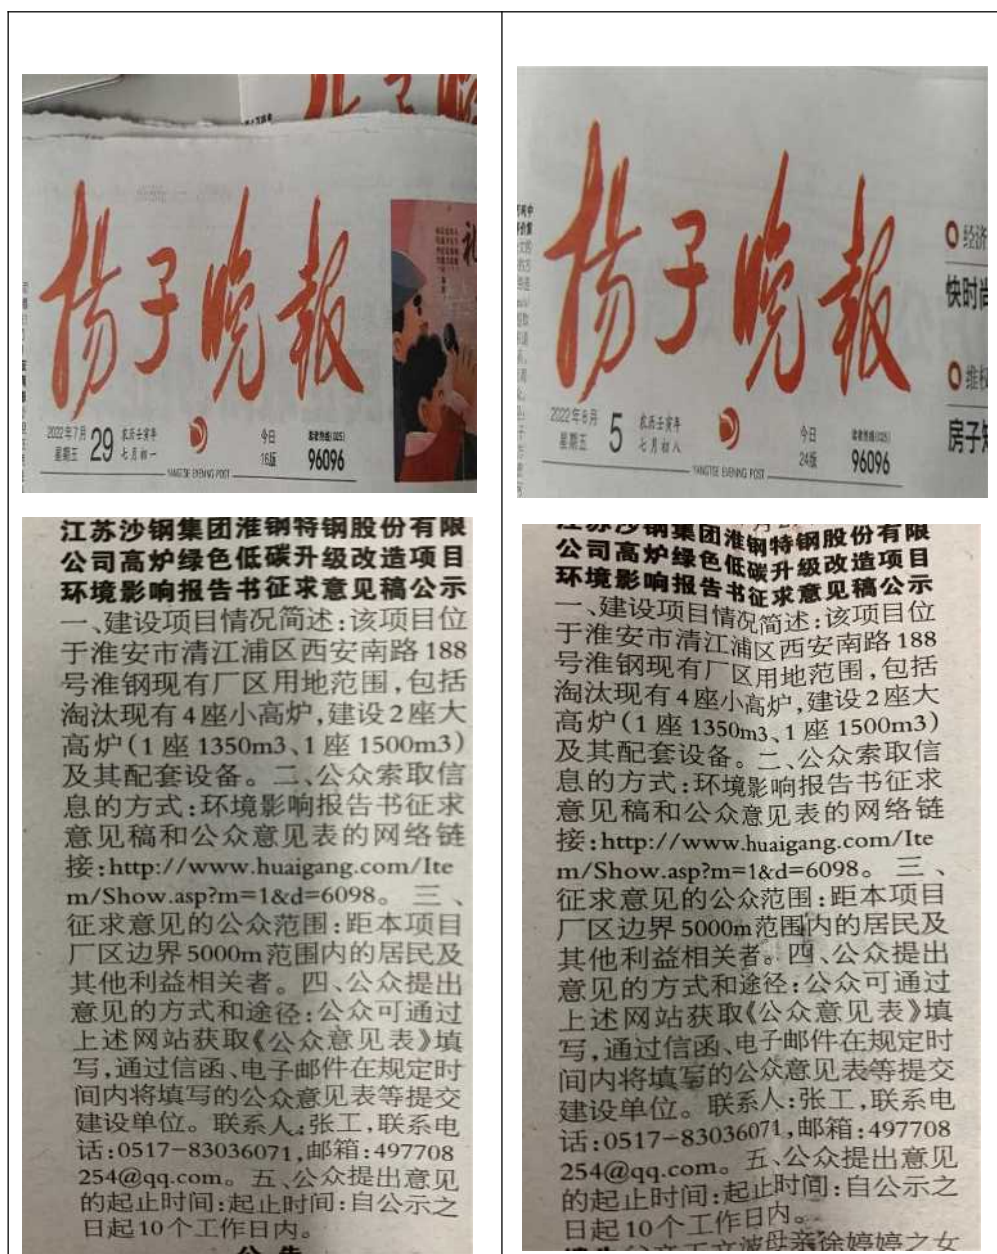 扬子晚报
2022年7月 29 农历壬寅年 今日 读者热线(025)
星期五 七月初一 16版 96096
YANGTSE EVENING POST
礼
江苏沙钢集团淮钢特钢股份有限
公司高炉绿色低碳升级改造项目
环境影响报告书征求意见稿公示
一、建设项目情况简述:该项目位
于淮安市清江浦区西安南路188
号淮钢现有厂区用地范围,包括
淘汰现有4座小高炉,建设2座大
高炉(1座1350m3、1座1500m3)
及其配套设备。二、公众索取信
息的方式:环境影响报告书征求
意见稿和公众意见表的网络链
接:http://www.huaigang.com/Ite
m/Show.asp?m=1&d=6098。三、
征求意见的公众范围:距本项目
厂区边界5000m范围内的居民及
其他利益相关者。四、公众提出
意见的方式和途径:公众可通过
上述网站获取《公众意见表》填
写,通过信函、电子邮件在规定时
间内将填写的公众意见表等提交
建设单位。联系人:张工,联系电
话:0517-83036071,邮箱:497708
254@qq.com。五、公众提出意见
的起止时间:起止时间:自公示之
日起10个工作日内。
公告
扬子晚报
2022年8月 5 农历壬寅年 今日 读者热线(025)
星期五 七月初八 24版 96096
YANGTSE EVENING POST
经济
快时尚
维权
房子
江苏沙钢集团淮钢特钢股份有限
公司高炉绿色低碳升级改造项目
环境影响报告书征求意见稿公示
一、建设项目情况简述:该项目位
于淮安市清江浦区西安南路188
号淮钢现有厂区用地范围,包括
淘汰现有4座小高炉,建设2座大
高炉(1座1350m3、1座1500m3)
及其配套设备。二、公众索取信
息的方式:环境影响报告书征求
意见稿和公众意见表的网络链
接:http://www.huaigang.com/Ite
m/Show.asp?m=1&d=6098。三、
征求意见的公众范围:距本项目
厂区边界5000m范围内的居民及
其他利益相关者。四、公众提出
意见的方式和途径:公众可通过
上述网站获取《公众意见表》填
写,通过信函、电子邮件在规定时
间内将填写的公众意见表等提交
建设单位。联系人:张工,联系电
话:0517-83036071,邮箱:497708
254@qq.com。五、公众提出意见
的起止时间:起止时间:自公示之
日起10个工作日内。
母亲徐婷婷之女